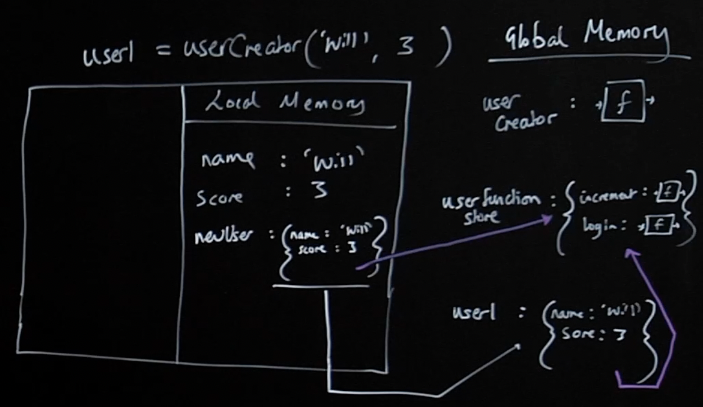 user1 = userCreator('Will', 3 )
Global Memory
Local Memory
user Creator : f
name : 'Will'
score : 3
newUser : { name : 'Will'
score : 3 }
userfunction store : { increment : f
login : f }
user1 : { name : 'Will'
Sore : 3 }